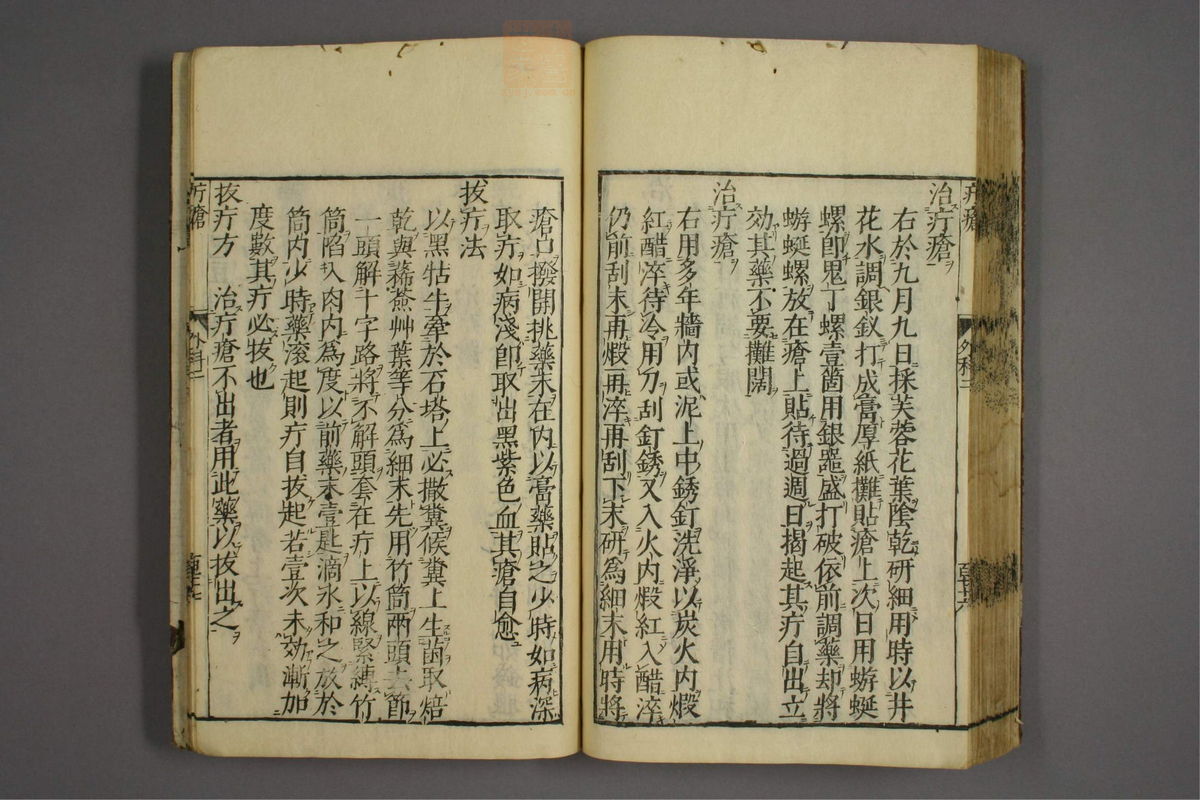 疔瘡
外科二
治疔瘡
右於九月九日採芙蓉花葉陰乾研細用時以井
花水調銀釵打成膏厚紙攤貼瘡上次日用蝣蜒
螺卽鬼丁螺壹箇用銀噐盛打破依前調藥却將
蝣蜒螺放在瘡上貼待過週日揭起其疔自出立
効其藥不要攤濶
治疔瘡
右用多年牆內或泥上中銹釘洗淨以炭火內煆
紅醋淬待冷用刀刮釘銹又入火內煆紅入醋淬
仍前刮末再煆再淬再刮下末研爲細末用時將
瘡口撥開挑藥末在內以膏藥貼之少時如病深
取疔如病淺卽取出黑紫色血其瘡自愈
拔疔法
以黑牯牛牽於石塔上必撒糞候糞上生菌取焙
乾與豨薟艸葉等分爲細末先用竹筒兩頭去節
一頭解十字路將不解頭套在疔上以線緊縛竹
筒陷入肉內爲度以前藥末壹匙滴水和之放於
筒內少時藥滾起則疔自拔起若壹次未効漸加
度數其疔必拔也
拔疔方　治疔瘡不出者用此藥以拔出之
疔瘡
外科二